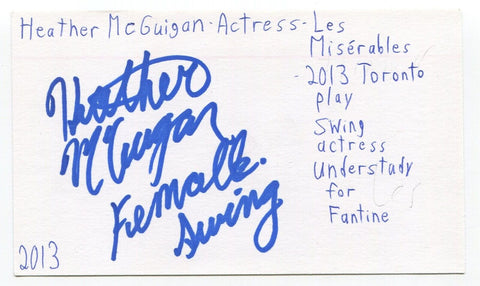 Heather McGuigan - Actress - Les
Misérables
- 2013 Toronto
play
Swing
actress
understudy
for
Fantine
Heather
McGuigan
Female
Swing
2013